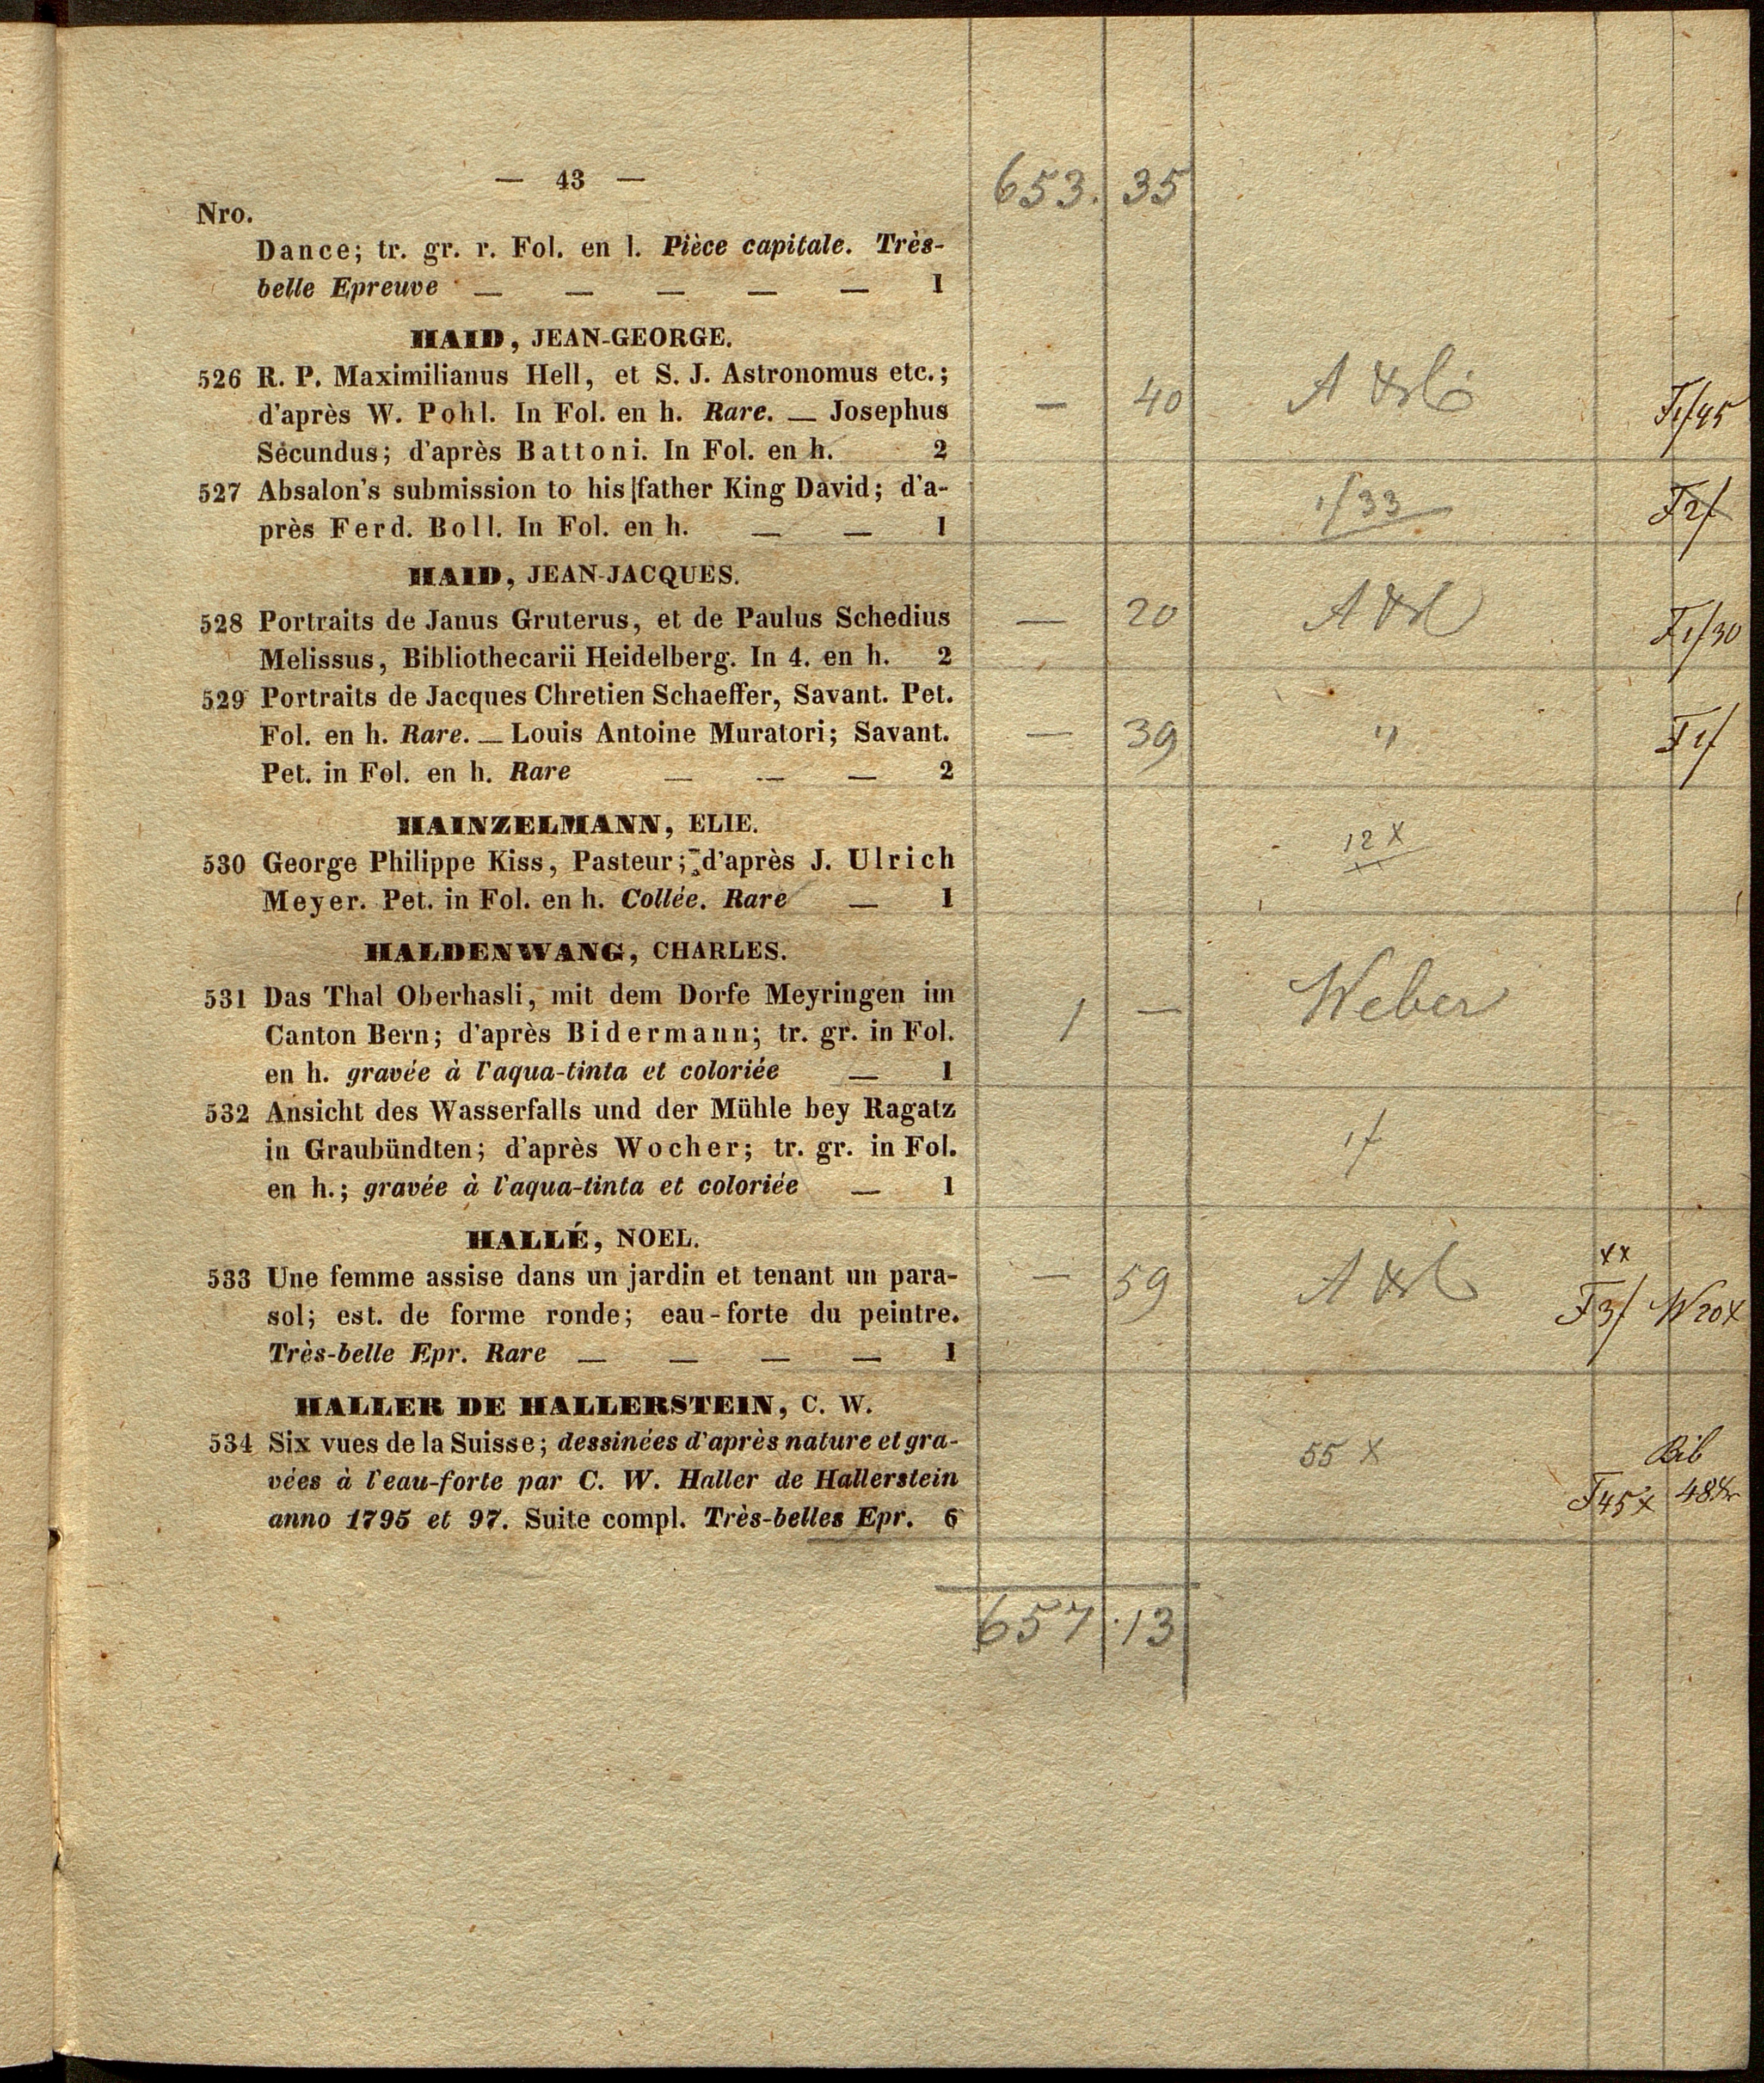 — 43 —
653. 35
Nro.
Dance; tr. gr. r. Fol. en l. Pièce capitale. Très-
belle Epreuve — — — — — 1
HAID, JEAN-GEORGE.
526 R. P. Maximilianus Hell, et S. J. Astronomus etc.;
d'après W. Pohl. In Fol. en h. Rare. — Josephus — 40
Secundus; d'après Battoni. In Fol. en h. 2
527 Absalon's submission to his father King David; d'a- 1/33 F2f
près Ferd. Boll. In Fol. en h. — — 1
HAID, JEAN-JACQUES.
528 Portraits de Janus Gruterus, et de Paulus Schedius — 20
Melissus, Bibliothecarii Heidelberg. In 4. en h. 2
529 Portraits de Jacques Chretien Schaeffer, Savant. Pet.
Fol. en h. Rare. — Louis Antoine Muratori; Savant. — 39 " F1f
Pet. in Fol. en h. Rare — — — 2
HAINZELMANN, ELIE.
12 x
530 George Philippe Kiss, Pasteur; d'après J. Ulrich
Meyer. Pet. in Fol. en h. Collée. Rare — 1
HALDENWANG, CHARLES.
531 Das Thal Oberhasli, mit dem Dorfe Meyringen im 1 — Weber
Canton Bern; d'après Bidermann; tr. gr. in Fol.
en h. gravée à l'aqua-tinta et coloriée — 1
532 Ansicht des Wasserfalls und der Mühle bey Ragatz
in Graubündten; d'après Wocher; tr. gr. in Fol. 1f
en h.; gravée à l'aqua-tinta et coloriée — 1
HALLÉ, NOEL.
xx
533 Une femme assise dans un jardin et tenant un para- — 59
sol; est. de forme ronde; eau-forte du peintre. F3f W20x
Très-belle Epr. Rare — — — — 1
HALLER DE HALLERSTEIN, C. W.
534 Six vues de la Suisse; dessinées d'après nature et gra- 55 x
vées à l'eau-forte par C. W. Haller de Hallerstein F45x
anno 1795 et 97. Suite compl. Très-belles Epr. 6
657 . 13